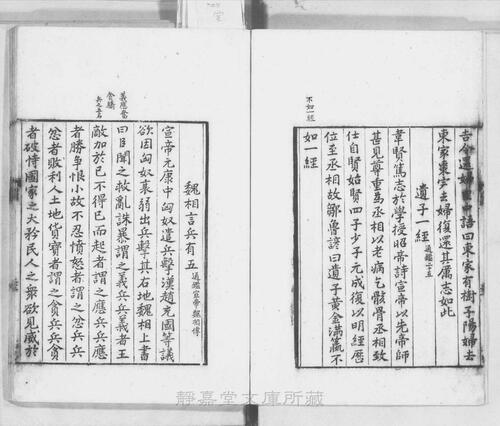 吉令還婦里中語曰東家有樹王陽婦去
東家棗完去婦復還其厲志如此
遺子一經 通鑑二十五
韋賢篤志於學授昭帝詩宣帝以先帝師
甚見尊重爲丞相以老病乞骸骨丞相致
仕自賢始賢四子少子元成復以明經歷
位至丞相故鄒魯諺曰遺子黃金滿籝不
如一經
不如一經
魏相言兵有五 通鑑宣帝 魏相傳
宣帝元康中匈奴遣兵擊漢趙充國等議
欲因匈奴衰弱出兵擊其右地魏相上書
曰臣聞之救亂誅暴謂之義兵兵義者王
敵加於己不得已而起者謂之應兵兵應
者勝爭恨小故不忍憤怒者謂之忿兵兵
忿者敗利人土地貨寶者謂之貪兵兵貪
者破恃國家之大矜民人之衆欲見威於
義應忿
貪驕
兵之五名
靜嘉堂文庫所藏